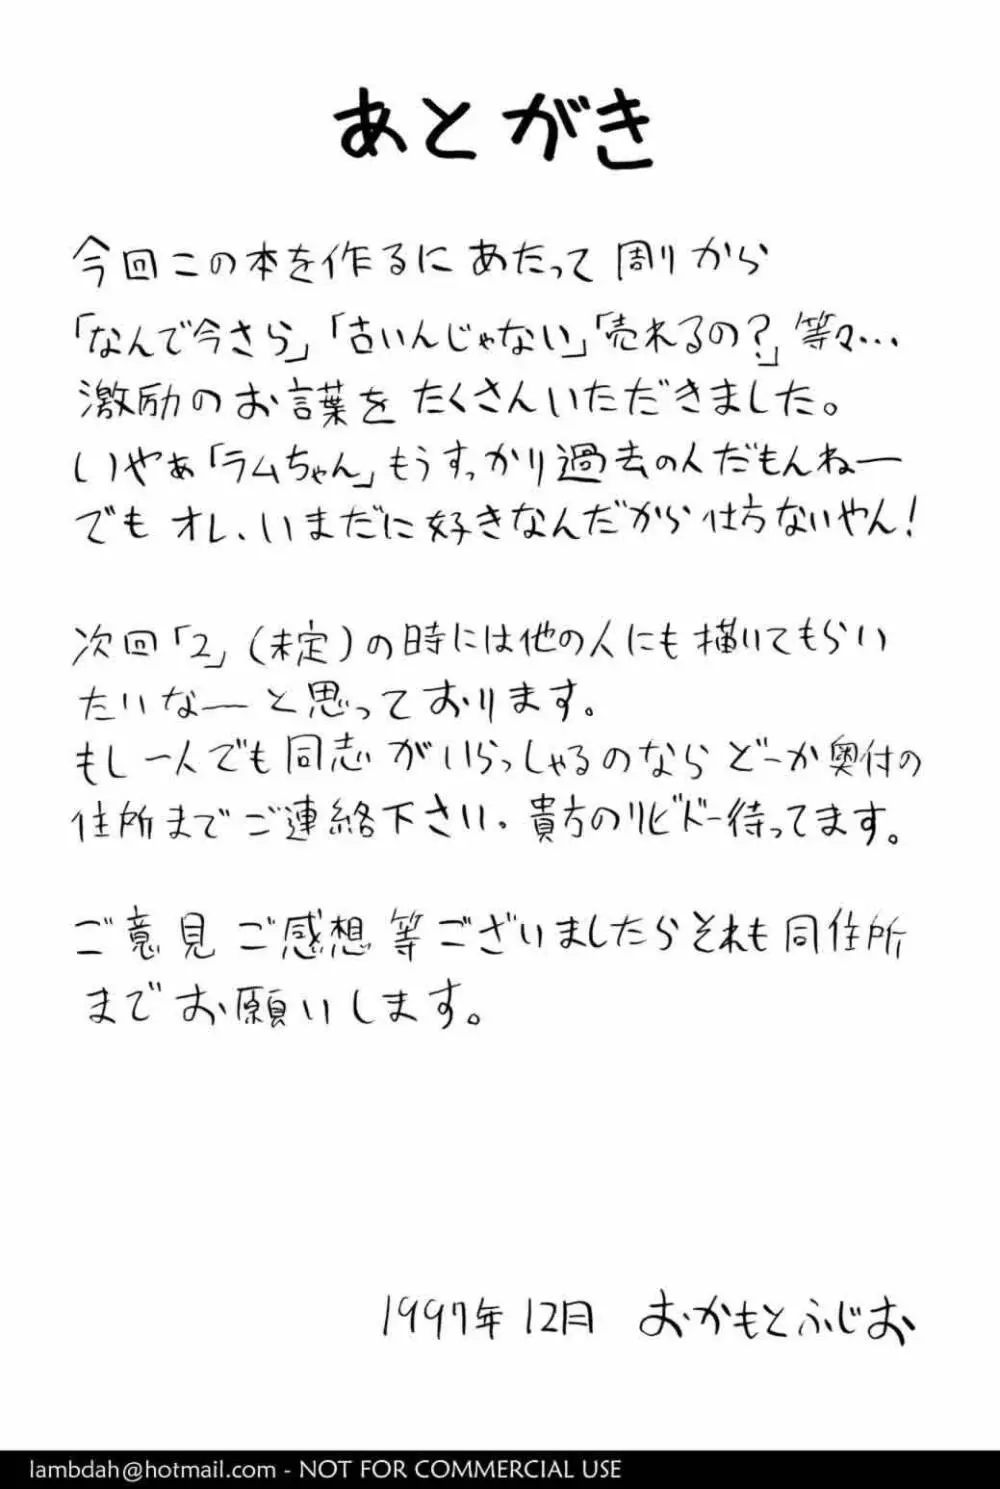 あとがき
今回この本を作るにあたって周りから
「なんで今さら」「古いんじゃない」「売れるの?」等々…
激励のお言葉をたくさんいただきました。
いやぁ「ラムちゃん」もうすっかり過去の人だもんねー
でもオレ、いまだに好きなんだから仕方ないやん!
次回「2」(未定)の時には他の人にも描いてもらい
たいなーと思っております。
もし一人でも同志がいらっしゃるのならどーか奥付の
住所までご連絡下さい、貴方のリビドー待ってます。
ご意見ご感想等ございましたらそれも同住所
までお願いします。
1997年12月 おかもとふじお
lambdah@hotmail.com - NOT FOR COMMERCIAL USE